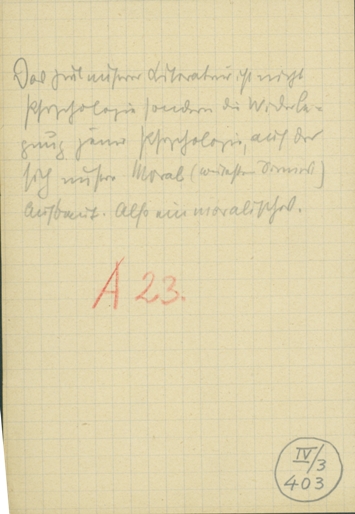 Das Ziel unserer Literatur ist nicht
Psychologie sondern die Widerle-
gung jener Psychologie, auf der
sich unsere Moral (
aufbaut. Also ein moralisches.
A 23.
IV/3
403